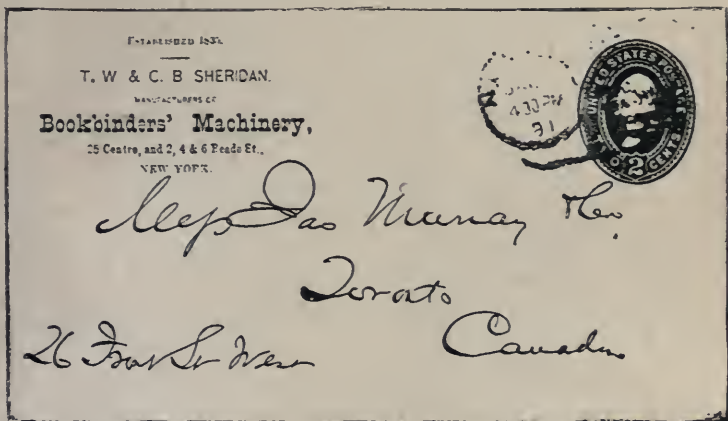 ESTABLISHED 1835.
T. W & C. B SHERIDAN.
MANUFACTURERS OF
Bookbinders' Machinery,
25 Centre, and 2, 4 & 6 Reade St.,
NEW YORK.
430 PM
91
UNITED STATES POSTAGE
2 CENTS
Mess Jas Murray & Co
Toronto
Canada
26 Front St West